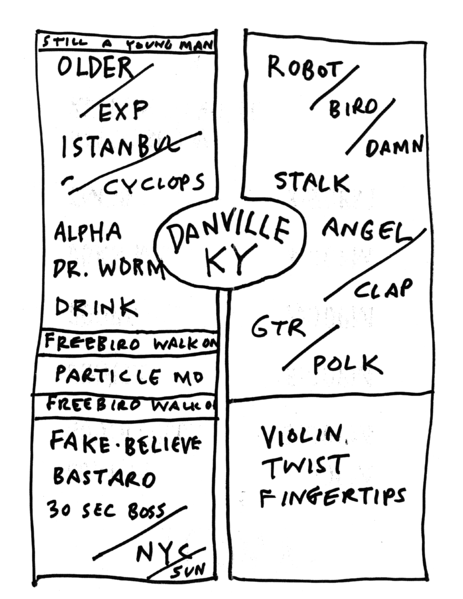 STILL A YOUNG MAN
OLDER
EXP
ISTANBUL
CYCLOPS
ALPHA
DR. WORM
DRINK
FREEBIRD WALK ON
PARTICLE MO
FREEBIRD WALK ON
FAKE-BELIEVE
BASTARD
30 SEC BOSS
NYC
SUN
DANVILLE
KY
ROBOT
BIRD
DAMN
STALK
ANGEL
CLAP
GTR
POLK
VIOLIN
TWIST
FINGERTIPS